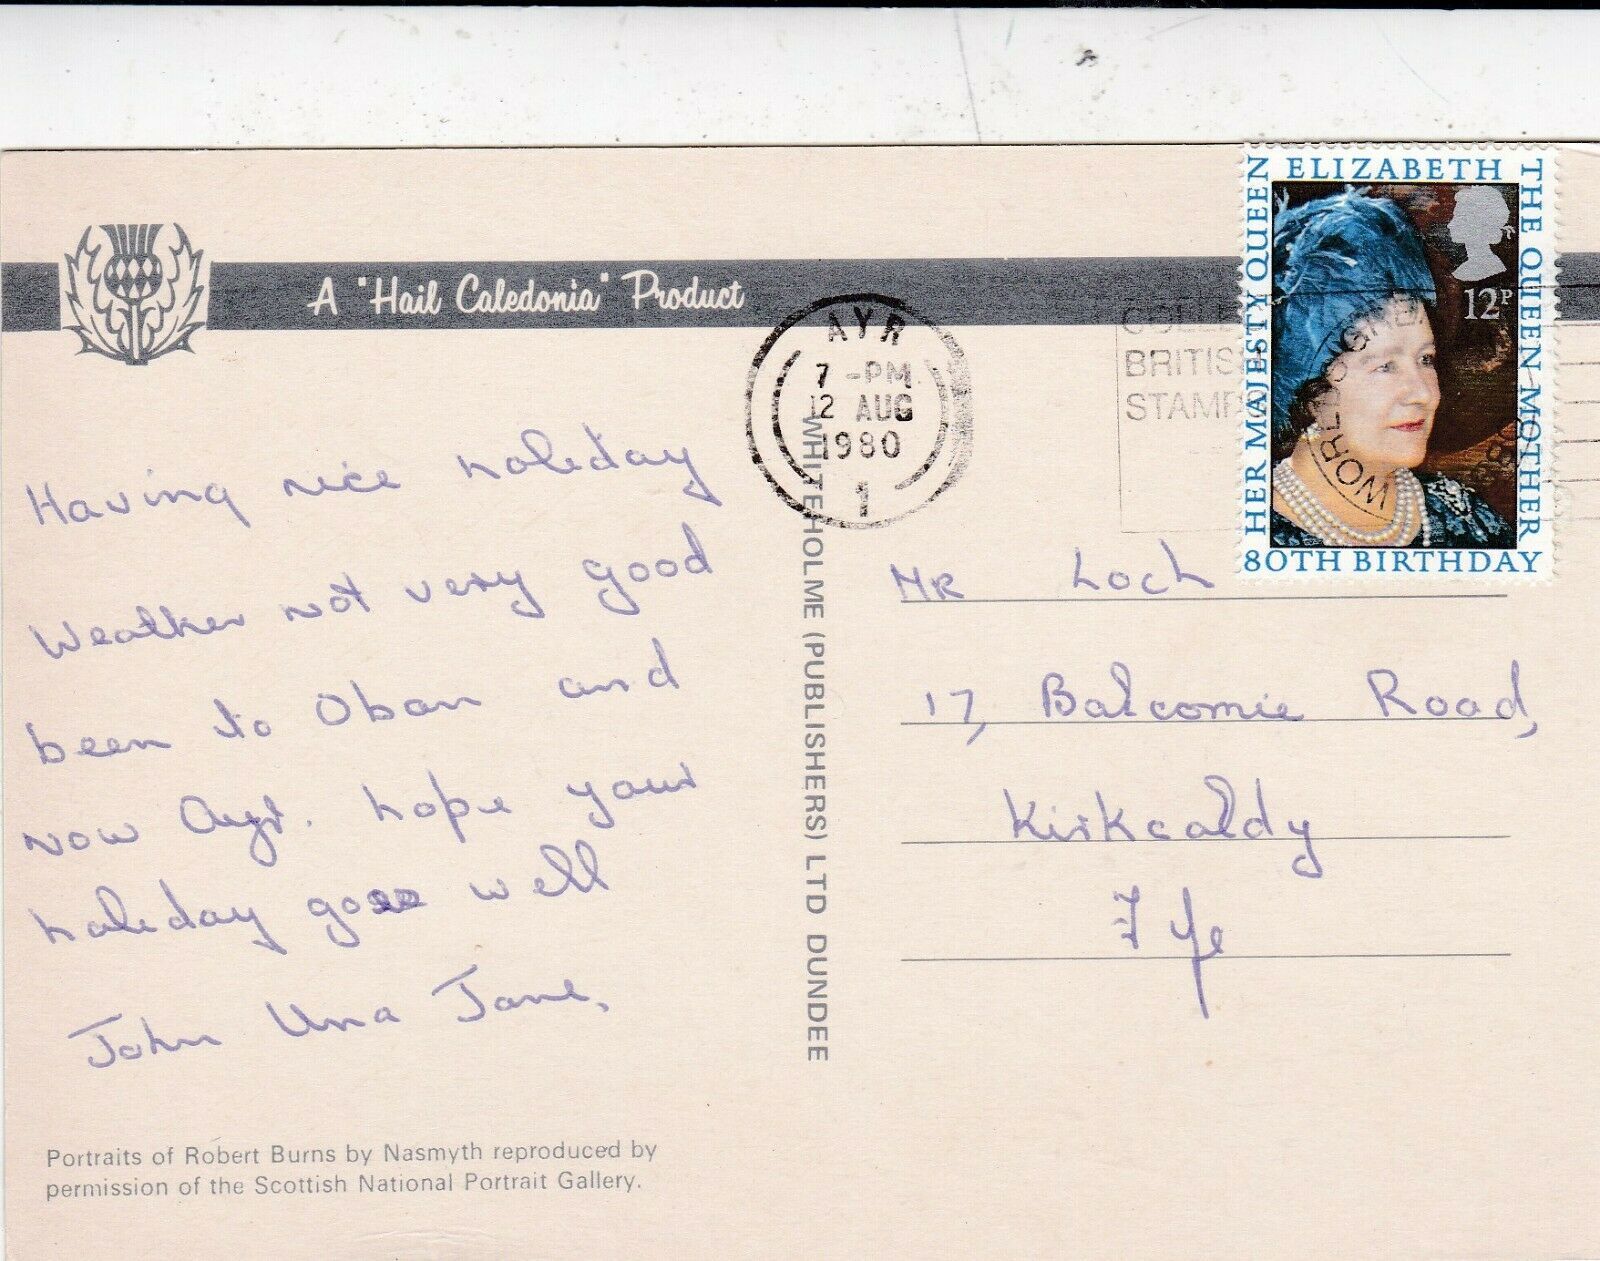 A "Hail Caledonia" Product
AYR
7 -PM
12 AUG
1980
1
BRITIS
STAMP
HER MAJESTY QUEEN
ELIZABETH
THE QUEEN MOTHER
80TH BIRTHDAY
12P
Having nice holiday
Weather not very good
been to Oban and
now Ayr. hope your
holiday goes well
John Una Jane,
WHITEHOLME (PUBLISHERS) LTD DUNDEE
MR Loch
17, Balcomie Road,
Kirkcaldy
Fife
Portraits of Robert Burns by Nasmyth reproduced by
permission of the Scottish National Portrait Gallery.